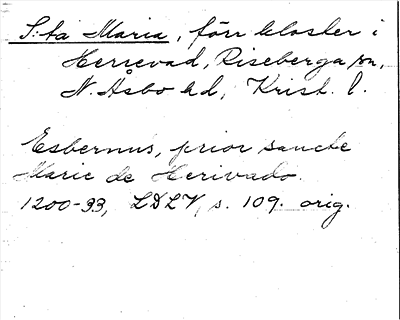 S:ta Maria, förr kloster i
Herrevad, Riseberga sn,
N. Åsbo hd, Krist. l.
Esbernus, prior sancte
Marie de Herivado.
1200-33, LDLV, s. 109. orig.